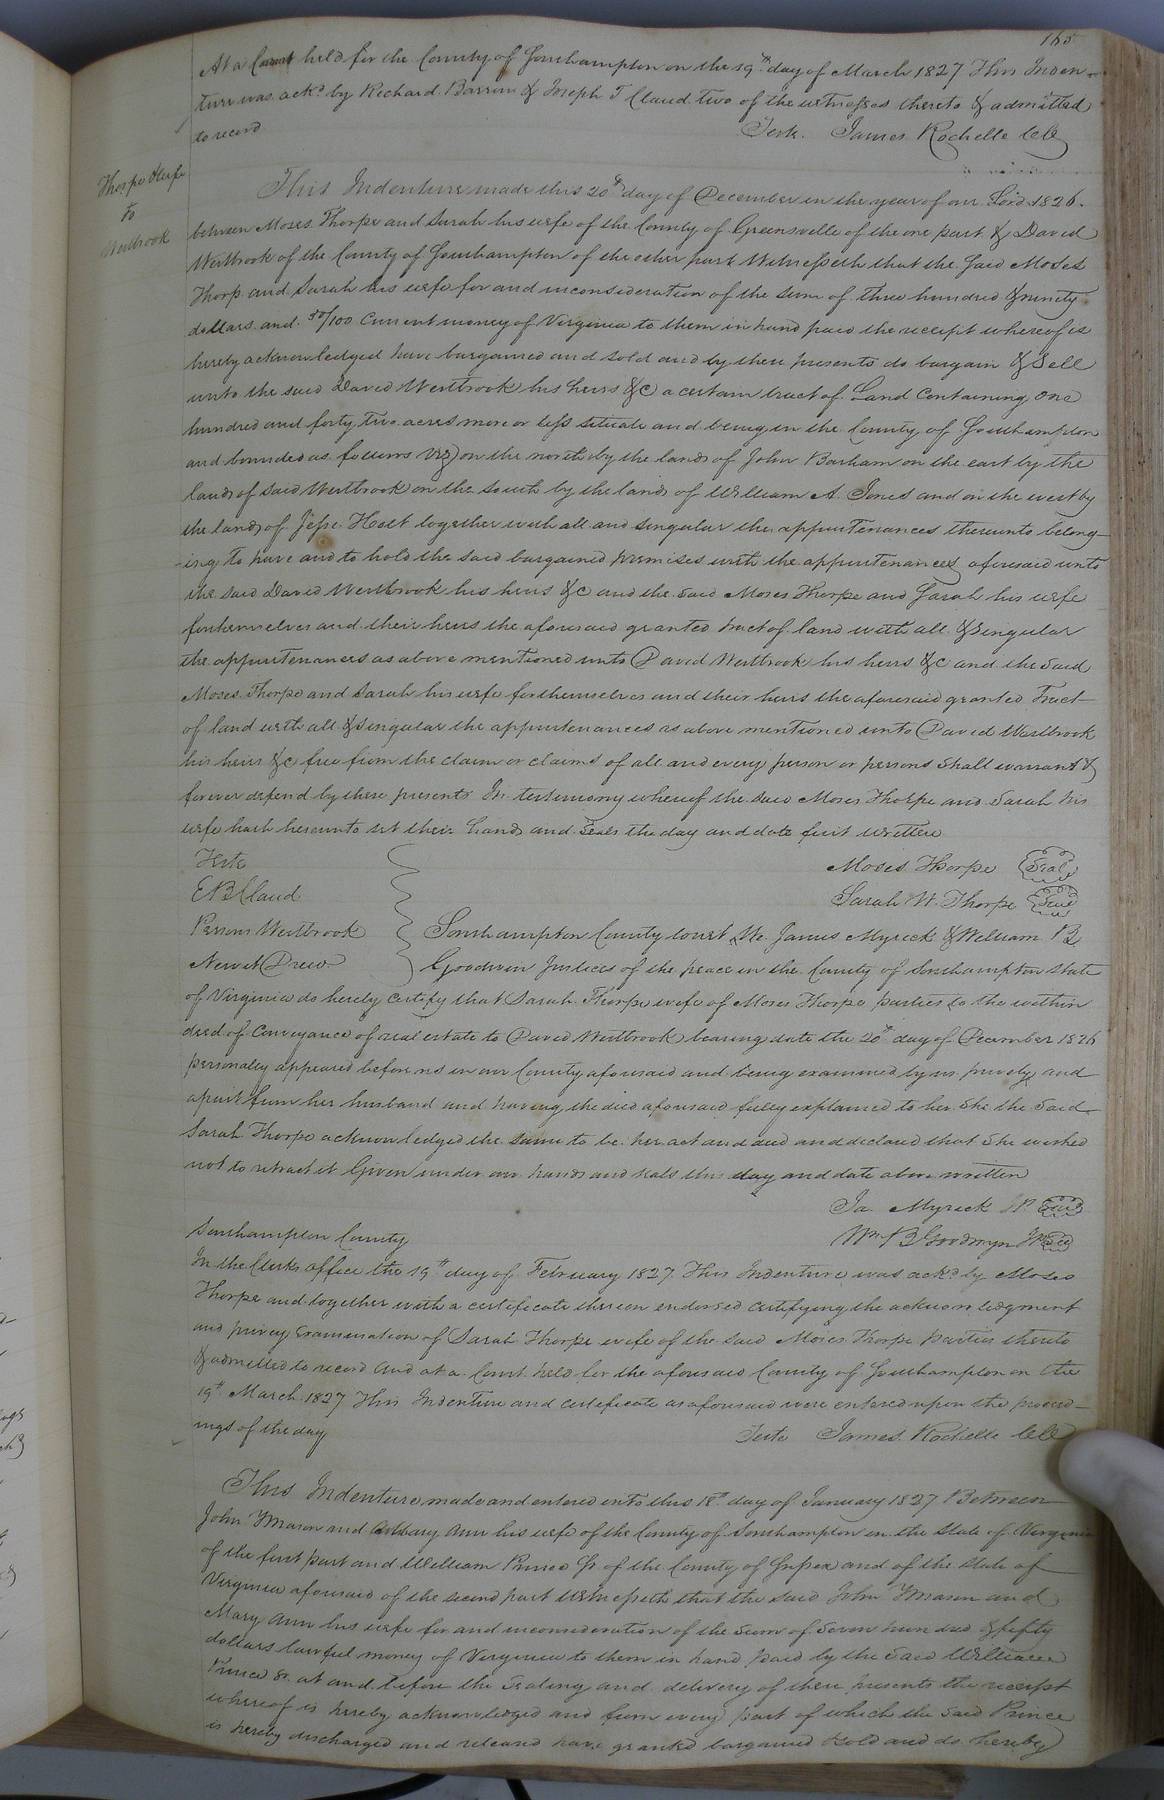 165
At a Court held for the County of Southampton on the 19th day of March 1827 This Inden-
ture was ackd by Richard Barrom & Joseph T Claud two of the witnesses thereto & admitted
to record
Teste. James Rochelle ClC
Thorpe & wife
to
Westbrook
This Indenture made this 20th day of December in the year of our Lord 1826.
between Moses Thorpe and Sarah his wife of the County of Greensville of the one part & David
Westbrook of the County of Southampton of the other part Witnesseth that the said Moses
Thorp and Sarah his wife for and inconsideration of the sum of three hundred & ninety
dollars and 50/100 Current money of Virginia to them in hand paid the receipt whereof is
hereby acknowledged have bargained and sold and by these presents do bargain & Sell
unto the said David Westbrook his heirs &c a certain tract of Land Containing one
hundred and forty two acres more or less situate and being in the County of Southampton
and bounded as follows Viz on the north by the lands of John Barham on the east by the
lands of said Westbrook on the south by the lands of William A. Jones and on the west by
the lands of Jesse Holt together with all and singular the appurtenances thereunto belong-
-ing to have and to hold the said bargained premises with the appurtenances aforesaid unto
the said David Westbrook his heirs &c and the said Moses Thorpe and Sarah his wife
forthemselves and their heirs the aforesaid granted tract of land with all & singular
the appurtenances as above mentioned unto David Westbrook his heirs &c and the said
Moses Thorpe and Sarah his wife forthemselves and their heirs the aforesaid granted Tract
of land with all & singular the appurtenances as above mentioned unto David Westbrook
his heirs &c free from the claim or claims of all and every person or persons shall warrant &
forever defend by these presents In testimony whereof the said Moses Thorpe and Sarah his
wife hath hereunto set their hands and seals the day and date first written
Teste
Moses Thorpe Seal
E B Claud
Sarah W. Thorpe Seal
Persons Westbrook
Southampton County Court We James Myrick & William B
Newit Drew
Goodwin Justices of the peace in the County of Southampton state
of Virginia do hereby certify that Sarah Thorpe wife of Moses Thorpe parties to the within
deed of Conveyance of real estate to David Westbrook bearing date the 20th day of December 1826
personally appeared before us in our County aforesaid and being examined by us privily and
apart from her husband and having the deed aforesaid fully explained to her she the said
Sarah Thorpe acknowledged the same to be her act and deed and declared that she wished
not to retract it Given under our hands and seals this day and date above written
Ja Myrick JP Seal
Wm B Goodwyn JP Seal
Southampton County
In the Clerks office the 19th day of February 1827 This Indenture was ackd by Moses
Thorpe and together with a certificate thereon endorsed certifying the acknowledgment
and privy Examination of Sarah Thorpe wife of the said Moses Thorpe parties thereto
& admitted to record And at a Court held for the aforesaid County of Southampton on the
19th March 1827 This Indenture and certificate as aforesaid were entered upon the proceed-
ings of the day
Teste James Rochelle ClC
This Indenture made and entered into this 18th day of January 1827 Between
John Mason and Mary Ann his wife of the County of Southampton in the State of Virginia
of the first part and William Prince Sr of the County of Sussex and of the state of
Virginia aforesaid of the second part Witnesseth that the said John Mason and
Mary Ann his wife for and inconsideration of the sum of Seven hundred & fifty
dollars lawful money of Virginia to them in hand paid by the said William
Prince Sr. at and before the Sealing and delivery of these presents the receipt
whereof is hereby acknowledged and from every part of which the said Prince
is hereby discharged and released have granted bargained sold and do hereby